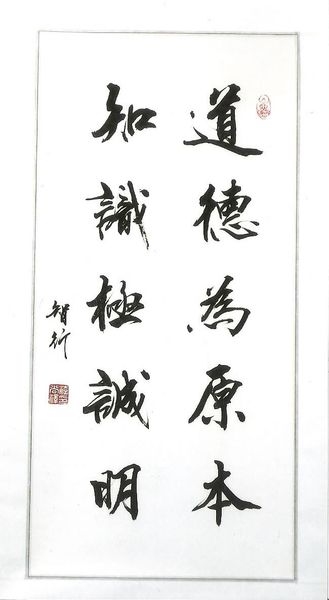 道德為原本
知識極誠明
智衍